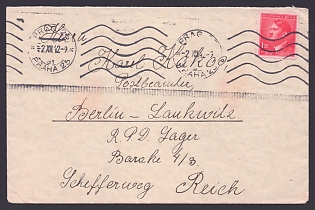 PRAG
PRAHA 25
-2.XII.42-9
PRAG
PRAHA 25
Herrn
Karel
Postbeamter
Berlin-Lankwitz
R.P.D. Lager
Barake 4/3.
Schifferweg Reich